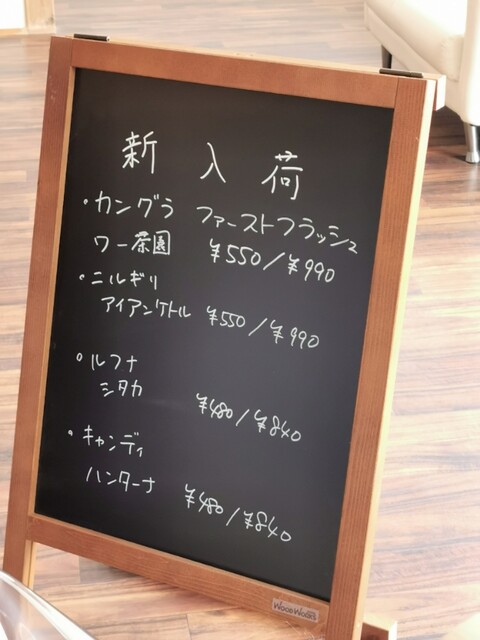 新入荷
・カングラ ファーストフラッシュ
ワー茶園 ¥550/¥990
・ニルギリ
アイアンケトル ¥550/¥990
・ルフナ
シタカ ¥480/¥840
・キャンディ
ハンターナ ¥480/¥840
WOODWORK